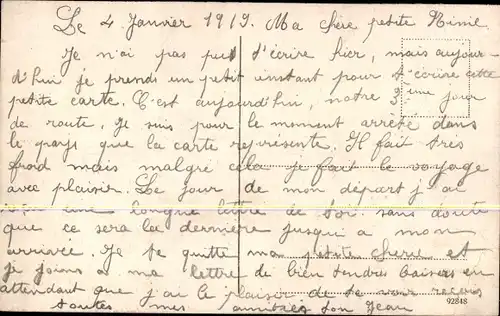 Le 4 Janvier 1919. Ma chère petite Mimie
Je n'ai pas pu t'écrire hier, mais aujour-
d'hui je prends un petit instant pour t'écrire cette
petite carte. C'est aujourd'hui, notre 3ème jour
de route. Je suis pour le moment arrêté dans
le pays que la carte représente. Il fait très
froid mais malgré cela je fait le voyage
avec plaisir. Le jour de mon départ j'ai
une longue lettre de toi. sans doute
que ce sera la dernière jusqu'a mon
arrivée. Je te quitte ma petite cherie et
je joins a ma lettre de bien tendres baisers en
attendant que j'ai le plaisir de te voir
toutes mes amitiés ton Jean
92848